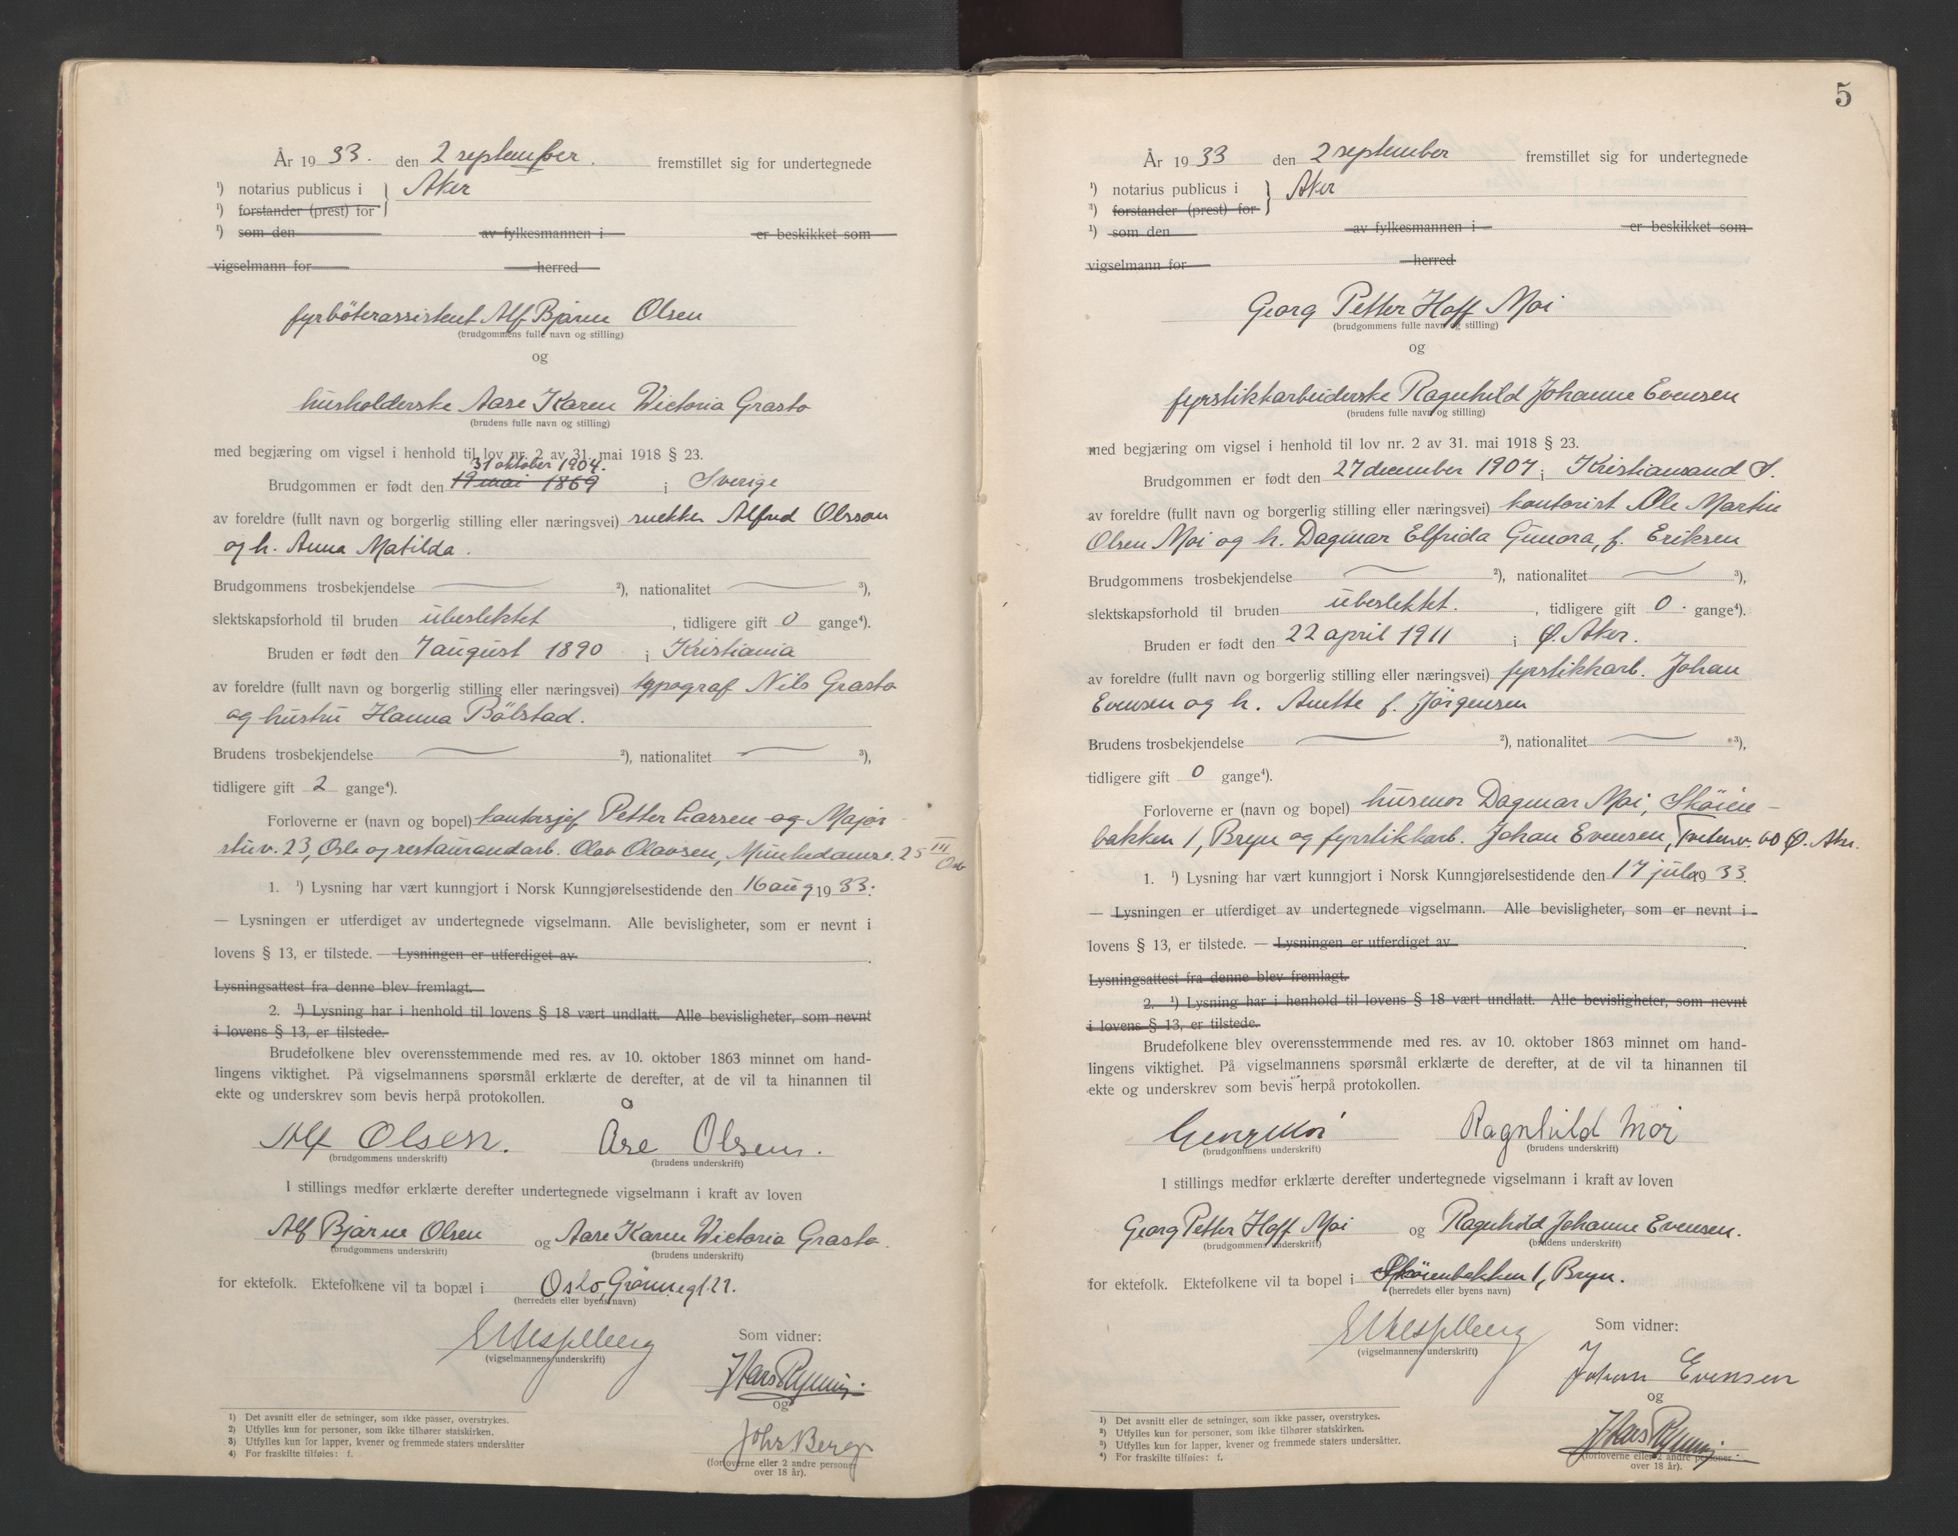 År 1933. den 2 september. fremstillet sig for undertegnede
¹) notarius publicus i } Aker
¹) forstander (prest) for
¹) som den av fylkesmannen i er beskikket som
vigselmann for herred
fyrbøterassistent Alf Bjarne Olsen
(brudgommens fulle navn og stilling)
og
husholderske Aase Karen Victoria Grasto
(brudens fulle navn og stilling)
med begjæring om vigsel i henhold til lov nr. 2 av 31. mai 1918 § 23.
31 oktober 1904.
Brudgommen er født den 19 mai 1869 i Sverige
av foreldre (fullt navn og borgerlig stilling eller næringsvei) snekker Alfred Olsson
og h. Anna Matilda.
Brudgommens trosbekjendelse — ²), nationalitet — ³),
slektskapsforhold til bruden ubeslektet, tidligere gift 0 gange⁴).
Bruden er født den 7 august 1890 i Kristiania
av foreldre (fullt navn og borgerlig stilling eller næringsvei) typograf Nils Grasto
og hustru Hanna Bölstad.
Brudens trosbekjendelse — ²), nationalitet — ³),
tidligere gift 2 gange⁴).
Forloverne er (navn og bopel) kontorsjef Petter Larsen og Major-
stuv. 23, Oslo og restaurandarb. Olav Olavsen, Munkedamsv. 25 III
Oslo
1. ¹) Lysning har vært kunngjort i Norsk Kunngjørelsestidende den 16 aug 1933.
— Lysningen er utferdiget av undertegnede vigselmann. Alle bevisligheter, som er nevnt i
lovens § 13, er tilstede. — Lysningen er utferdiget av .
Lysningsattest fra denne blev fremlagt.
2. ¹) Lysning har i henhold til lovens § 18 vært undlatt. Alle bevisligheter, som nevnt
i lovens § 13, er tilstede.
Brudefolkene blev overensstemmende med res. av 10. oktober 1863 minnet om hand-
lingens viktighet. På vigselmannens spørsmål erklærte de derefter, at de vil ta hinannen til
ekte og underskrev som bevis herpå protokollen.
Alf Olsen. Åse Olsen.
(brudgommens underskrift) (brudens underskrift)
I stillings medfør erklærte derefter undertegnede vigselmann i kraft av loven
Alf Bjarne Olsen og Aase Karen Victoria Grasto.
(brudgommens underskrift) (brudens underskrift)
for ektefolk. Ektefolkene vil ta bopæl i Oslo,
(herredets eller byens navn)
(vigselmannens underskrift)
Som vidner:
Hans Ryning
og
Johs Berg
(forloverne eller 2 andre personer
over 18 år).
1) Det avsnitt eller de setninger, som ikke passer, overstrykes.
2) Utfylles kun for personer, som ikke tilhører statskirken.
3) Utfylles kun for lapper, kvener og fremmede staters undersåtter
4) For fraskilte tilføies: f.
5
År 1933 den 2 september fremstillet sig for undertegnede
¹) notarius publicus i } Aker
²) forstander (prest) for
¹) som den av fylkesmannen i er beskikket som
vigselmann for herred
Georg Petter Hoff Moi
(brudgommens fulle navn og stilling)
og
fyrstikkarbeiderske Ragnhild Johanne Evensen
(brudens fulle navn og stilling)
med begjæring om vigsel i henhold til lov nr. 2 av 31. mai 1918 § 23.
Brudgommen er født den 27 december 1907 i Kristiansand S.
av foreldre (fullt navn og borgerlig stilling eller næringsvei) kontorist Ole Martin
Olsen Moi og h. Dagmar Elfrida Gunora, f. Eriksen
Brudgommens trosbekjendelse — ²), nationalitet — ³),
slektskapsforhold til bruden ubeslektet., tidligere gift 0. gange⁴).
Bruden er født den 22 april 1911 i Ø. Aker.
av foreldre (fullt navn og borgerlig stilling eller næringsvei) fyrstikkarb. Johan
Evensen og h. Anette f. Jørgensen
Brudens trosbekjendelse — ²), nationalitet — ³),
tidligere gift 0 gange⁴).
Forloverne er (navn og bopel) husmor Dagmar Moi, Skøien-
bakken 1, Bryn og fyrstikkarb. Johan Evensen, 60 Ø. Aker.
1. ¹) Lysning har vært kunngjort i Norsk Kunngjørelsestidende den 17 juli 1933.
— Lysningen er utferdiget av undertegnede vigselmann. Alle bevisligheter, som er nevnt i
lovens § 13, er tilstede. — Lysningen er utferdiget av .
Lysningsattest fra denne blev fremlagt.
2. ¹) Lysning har i henhold til lovens § 18 vært undlatt. Alle bevisligheter, som nevnt
i lovens § 13, er tilstede.
Brudefolkene blev overensstemmende med res. av 10. oktober 1863 minnet om hand-
lingens viktighet. På vigselmannens spørsmål erklærte de derefter, at de vil ta hinannen til
ekte og underskrev som bevis herpå protokollen.
Georg Moi Ragnhild Moi
(brudgommens underskrift) (brudens underskrift)
I stillings medfør erklærte derefter undertegnede vigselmann i kraft av loven
Georg Petter Hoff Moi og Ragnhild Johanne Evensen.
(brudgommens underskrift) (brudens underskrift)
for ektefolk. Ektefolkene vil ta bopel i Skøienbakken 1, Bryn.
(herredets eller byens navn)
(vigselmannens underskrift)
Som vidner:
Johan Evensen
og
Hans Ryning
(forloverne eller 2 andre personer
over 18 år).
¹) Det avsnitt eller de setninger, som ikke passer, overstrykes.
²) Utfylles kun for personer, som ikke tilhører statskirken.
³) Utfylles kun for lapper, kvener og fremmede staters undersåtter.
⁴) For fraskilte tilføies: f.